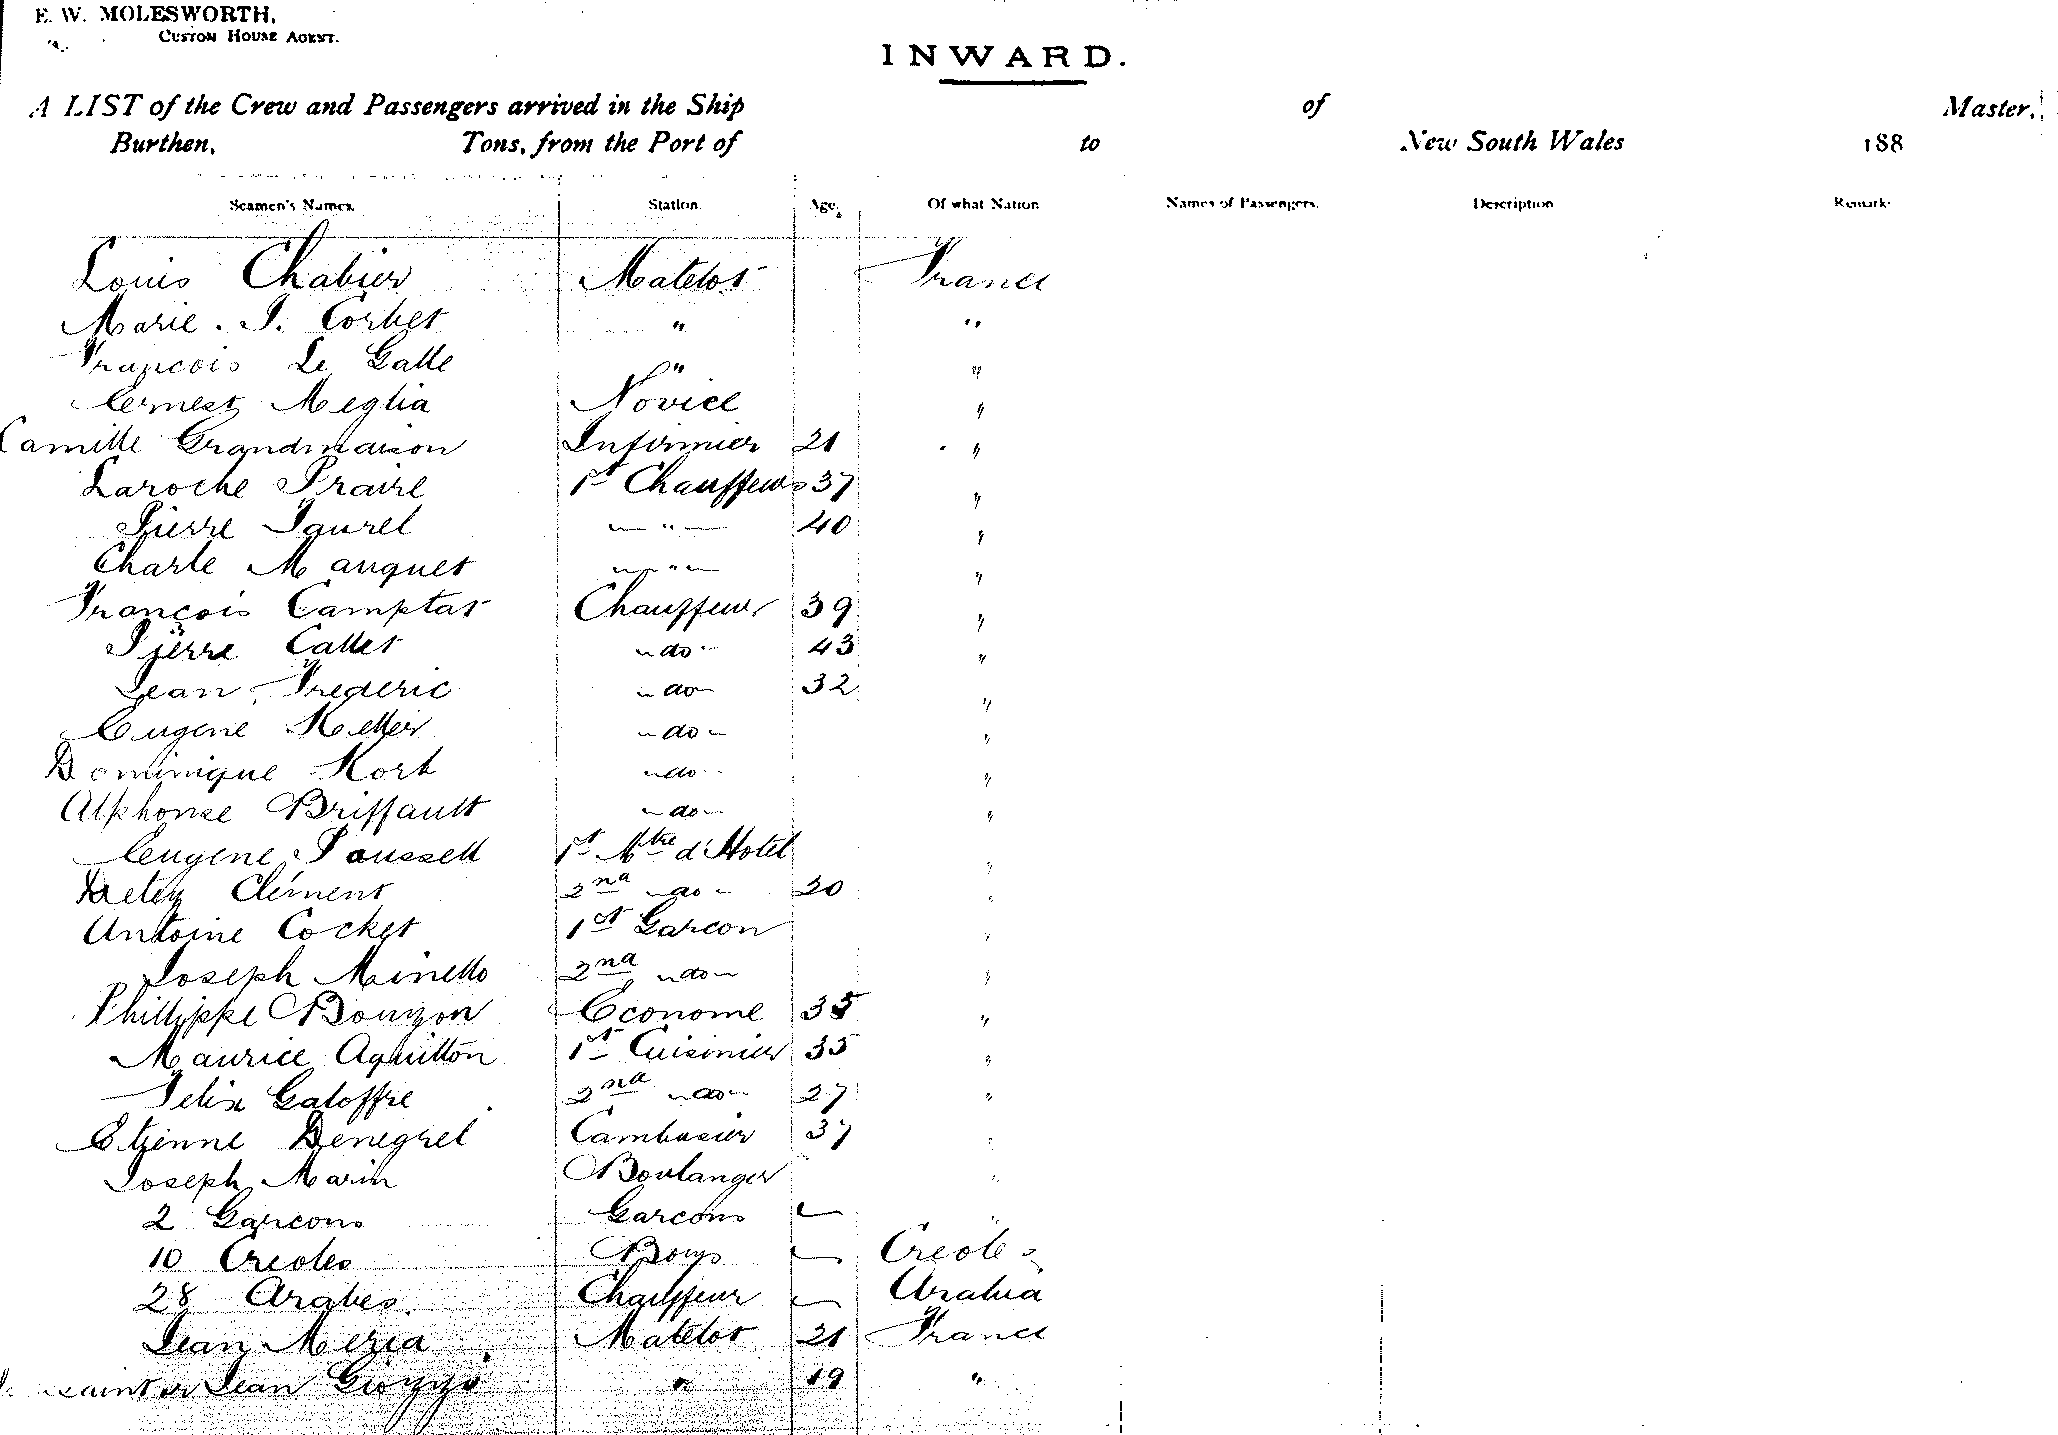 E. W. MOLESWORTH,
CUSTOM HOUSE AGENT.
INWARD.
A LIST of the Crew and Passengers arrived in the Ship of Master,
Burthen, Tons, from the Port of to New South Wales 188
Seamen's Names. Station. Age. Of what Nation Names of Passengers. Description Remark
Louis Chabier Matelot France
Marie . J. Corbet " "
Francois Le Galle " "
Ernest Meglia Novice "
Camille Grandmaison Infirmier 21 "
Laroche Prairie 1st Chauffeurs 37 "
Pierre Taurel " 40 "
Charle Mauguet " "
François Camptar Chauffeur 39 "
Pierre Callet do 43 "
Jean Frederic do 32 "
Eugene Keller do "
Dominique Korb do "
Alphonse Briffault do "
Eugene Poussell 1st Mtre d'Hotel "
Clément 2nd do 20 "
Antoine Cocket 1st Garcon "
Joseph Minello 2nd do "
Phillippe Bouyon Econome 35 "
Maurice Aquillon 1st Cuisinier 35 "
Felix Galoffre 2nd do 27 "
Etienne Denegrel Cambusier 37 "
Joseph Marin Boulanger "
2 Garcons Garcons "
10 Creoles Boys Creoles
28 Arabes Chauffeur Arabia
Jean Meria Matelot 21 France
Jean " 19 "